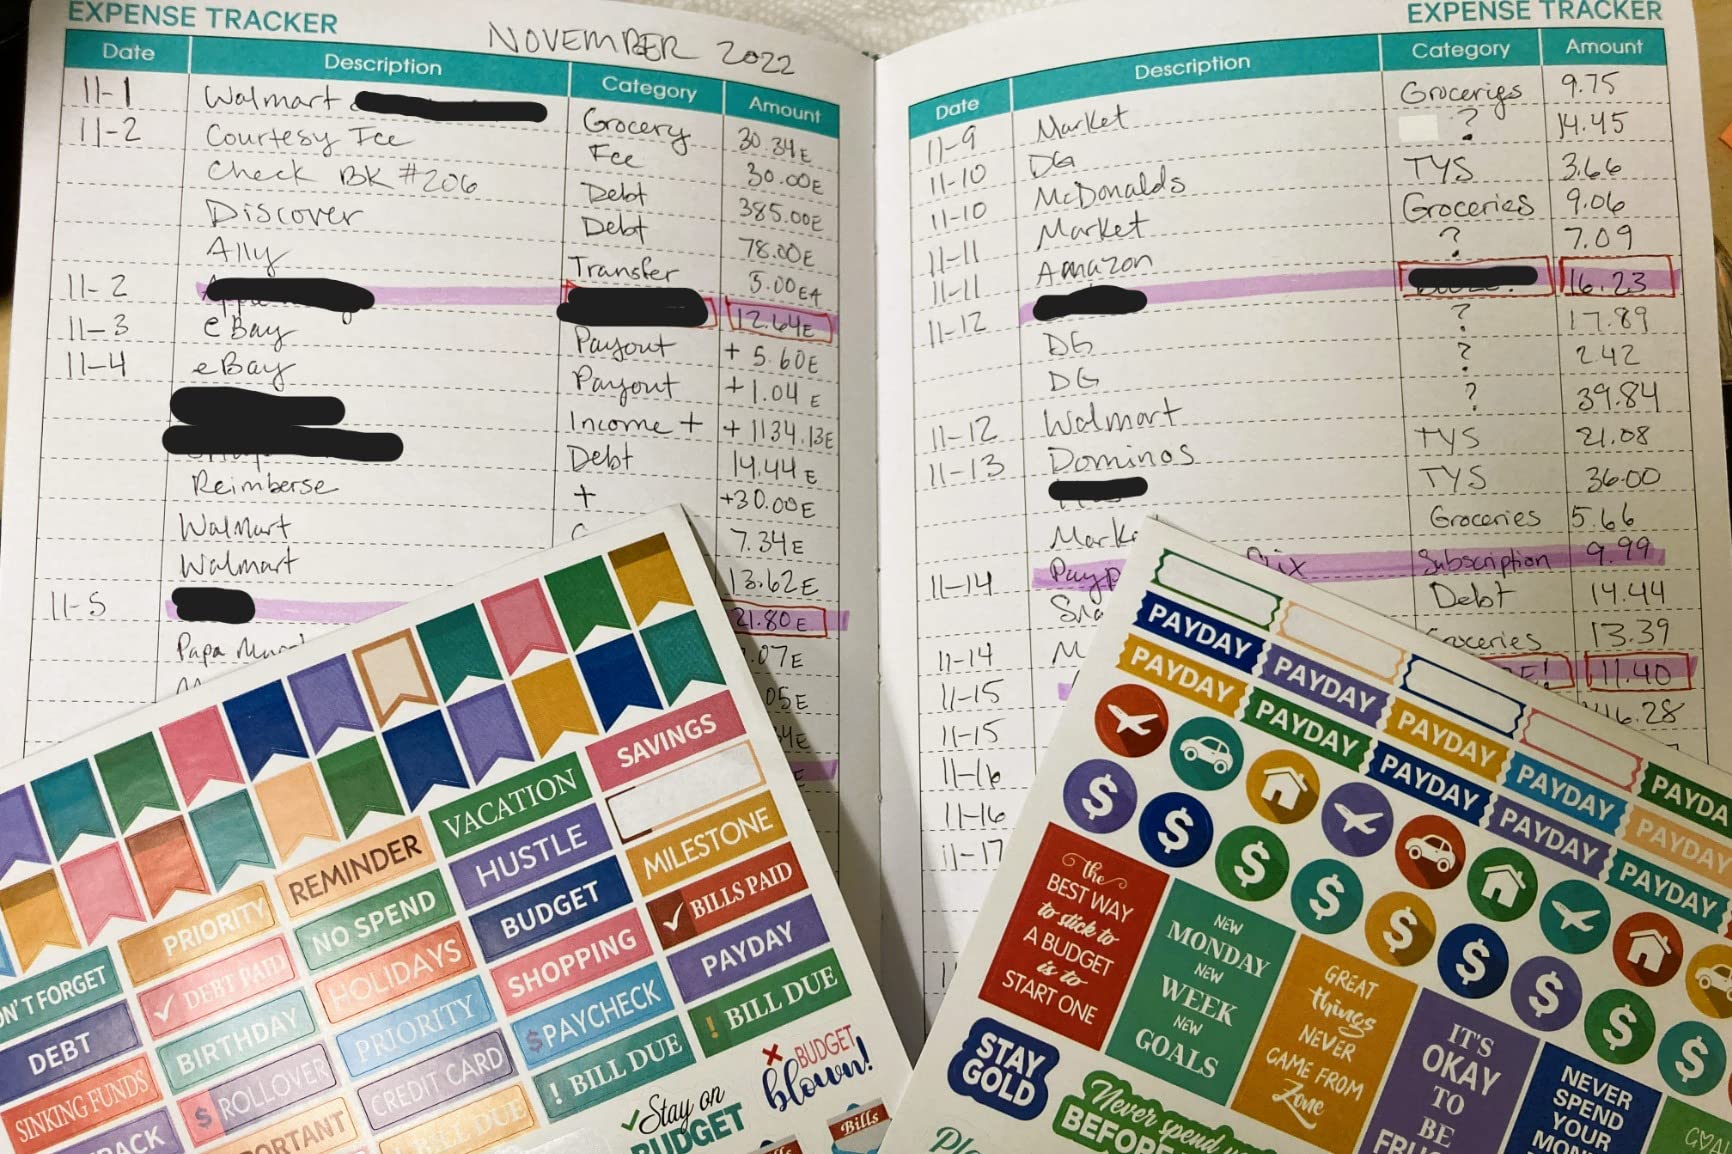 EXPENSE TRACKER
NOVEMBER 2022
Date Description Category Amount
11-1 Walmart Grocery 30.34E
11-2 Courtesy Fee Fee 30.00E
Check BK #206 Debt 385.00E
Discover Debt 78.00E
Ally Transfer 5.00E
11-2 12.64E
11-3 eBay Payout +5.60E
11-4 eBay Payout +1.04E
Income + +1134.13E
Debt 14.44E
Reimberse + +30.00E
Walmart 7.34E
Walmart 13.62E
11-5 21.80E
Papa .07E
.05E
EXPENSE TRACKER
Date Description Category Amount
11-9 Market Groceries 9.75
11-10 DG ? 14.45
11-10 McDonalds TYS 3.66
11-11 Market Groceries 9.06
11-11 Amazon ? 7.09
16.23
11-12 DG ? 17.89
DG ? 2.42
11-12 Walmart ? 39.84
11-13 Dominos TYS 21.08
TYS 36.00
Groceries 5.66
11-14 Payp Subscription 9.99
Debt 14.44
11-14 M Groceries 13.39
11-15 E! 11.40
11-15 16.28
11-16
11-16
11-17
SAVINGS
VACATION
REMINDER HUSTLE MILESTONE
PRIORITY NO SPEND BUDGET BILLS PAID
N'T FORGET DEBT PAID HOLIDAYS SHOPPING PAYDAY
DEBT BIRTHDAY PRIORITY $PAYCHECK ! BILL DUE
SINKING FUNDS $ROLLOVER CREDIT CARD ! BILL DUE
RACK PORTANT BILL DUE
Stay on
BUDGET
BUDGET
blown!
Bills
PAYDAY PAYDAY PAYDAY PAYDAY PAYDA
PAYDAY PAYDAY PAYDAY PAYDAY PAYDAY
PAYDAY
$ $ $ $ $ $ $ $ $
the
BEST WAY
to stick to
A BUDGET
is to
START ONE
NEW
MONDAY
NEW
WEEK
NEW
GOALS
GREAT
things
NEVER
CAME FROM
Zone
IT'S
OKAY
TO
BE
FRUG
NEVER
SPEND
YOUR
MON
STAY
GOLD
Never spend
BEFORE